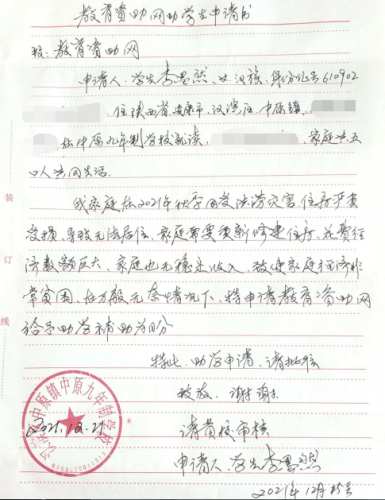 教育资助网助学生申请书
致:教育资助网
申请人:学生李思然、女、汉族、身份证号610902
住陕西省安康市汉滨区中原镇
在中原九年制学校就读、家庭共五
口人共同生活。
我家庭在2021年秋季因发洪涝灾害,住房严重
受损,导致无法居住,家庭需要重新修建住房,花费经
济数额巨大,家庭也无稳定收入,致使家庭经济非
常贫困,在万般无奈情况下,特申请教育资助网
给予助学补助
特此,助学申请,请批核
致敬 谢谢
请贵校审核
申请人:学生李思然
2021年12月25号
中原镇中原九年制学校
2021.12.25
装
订
线